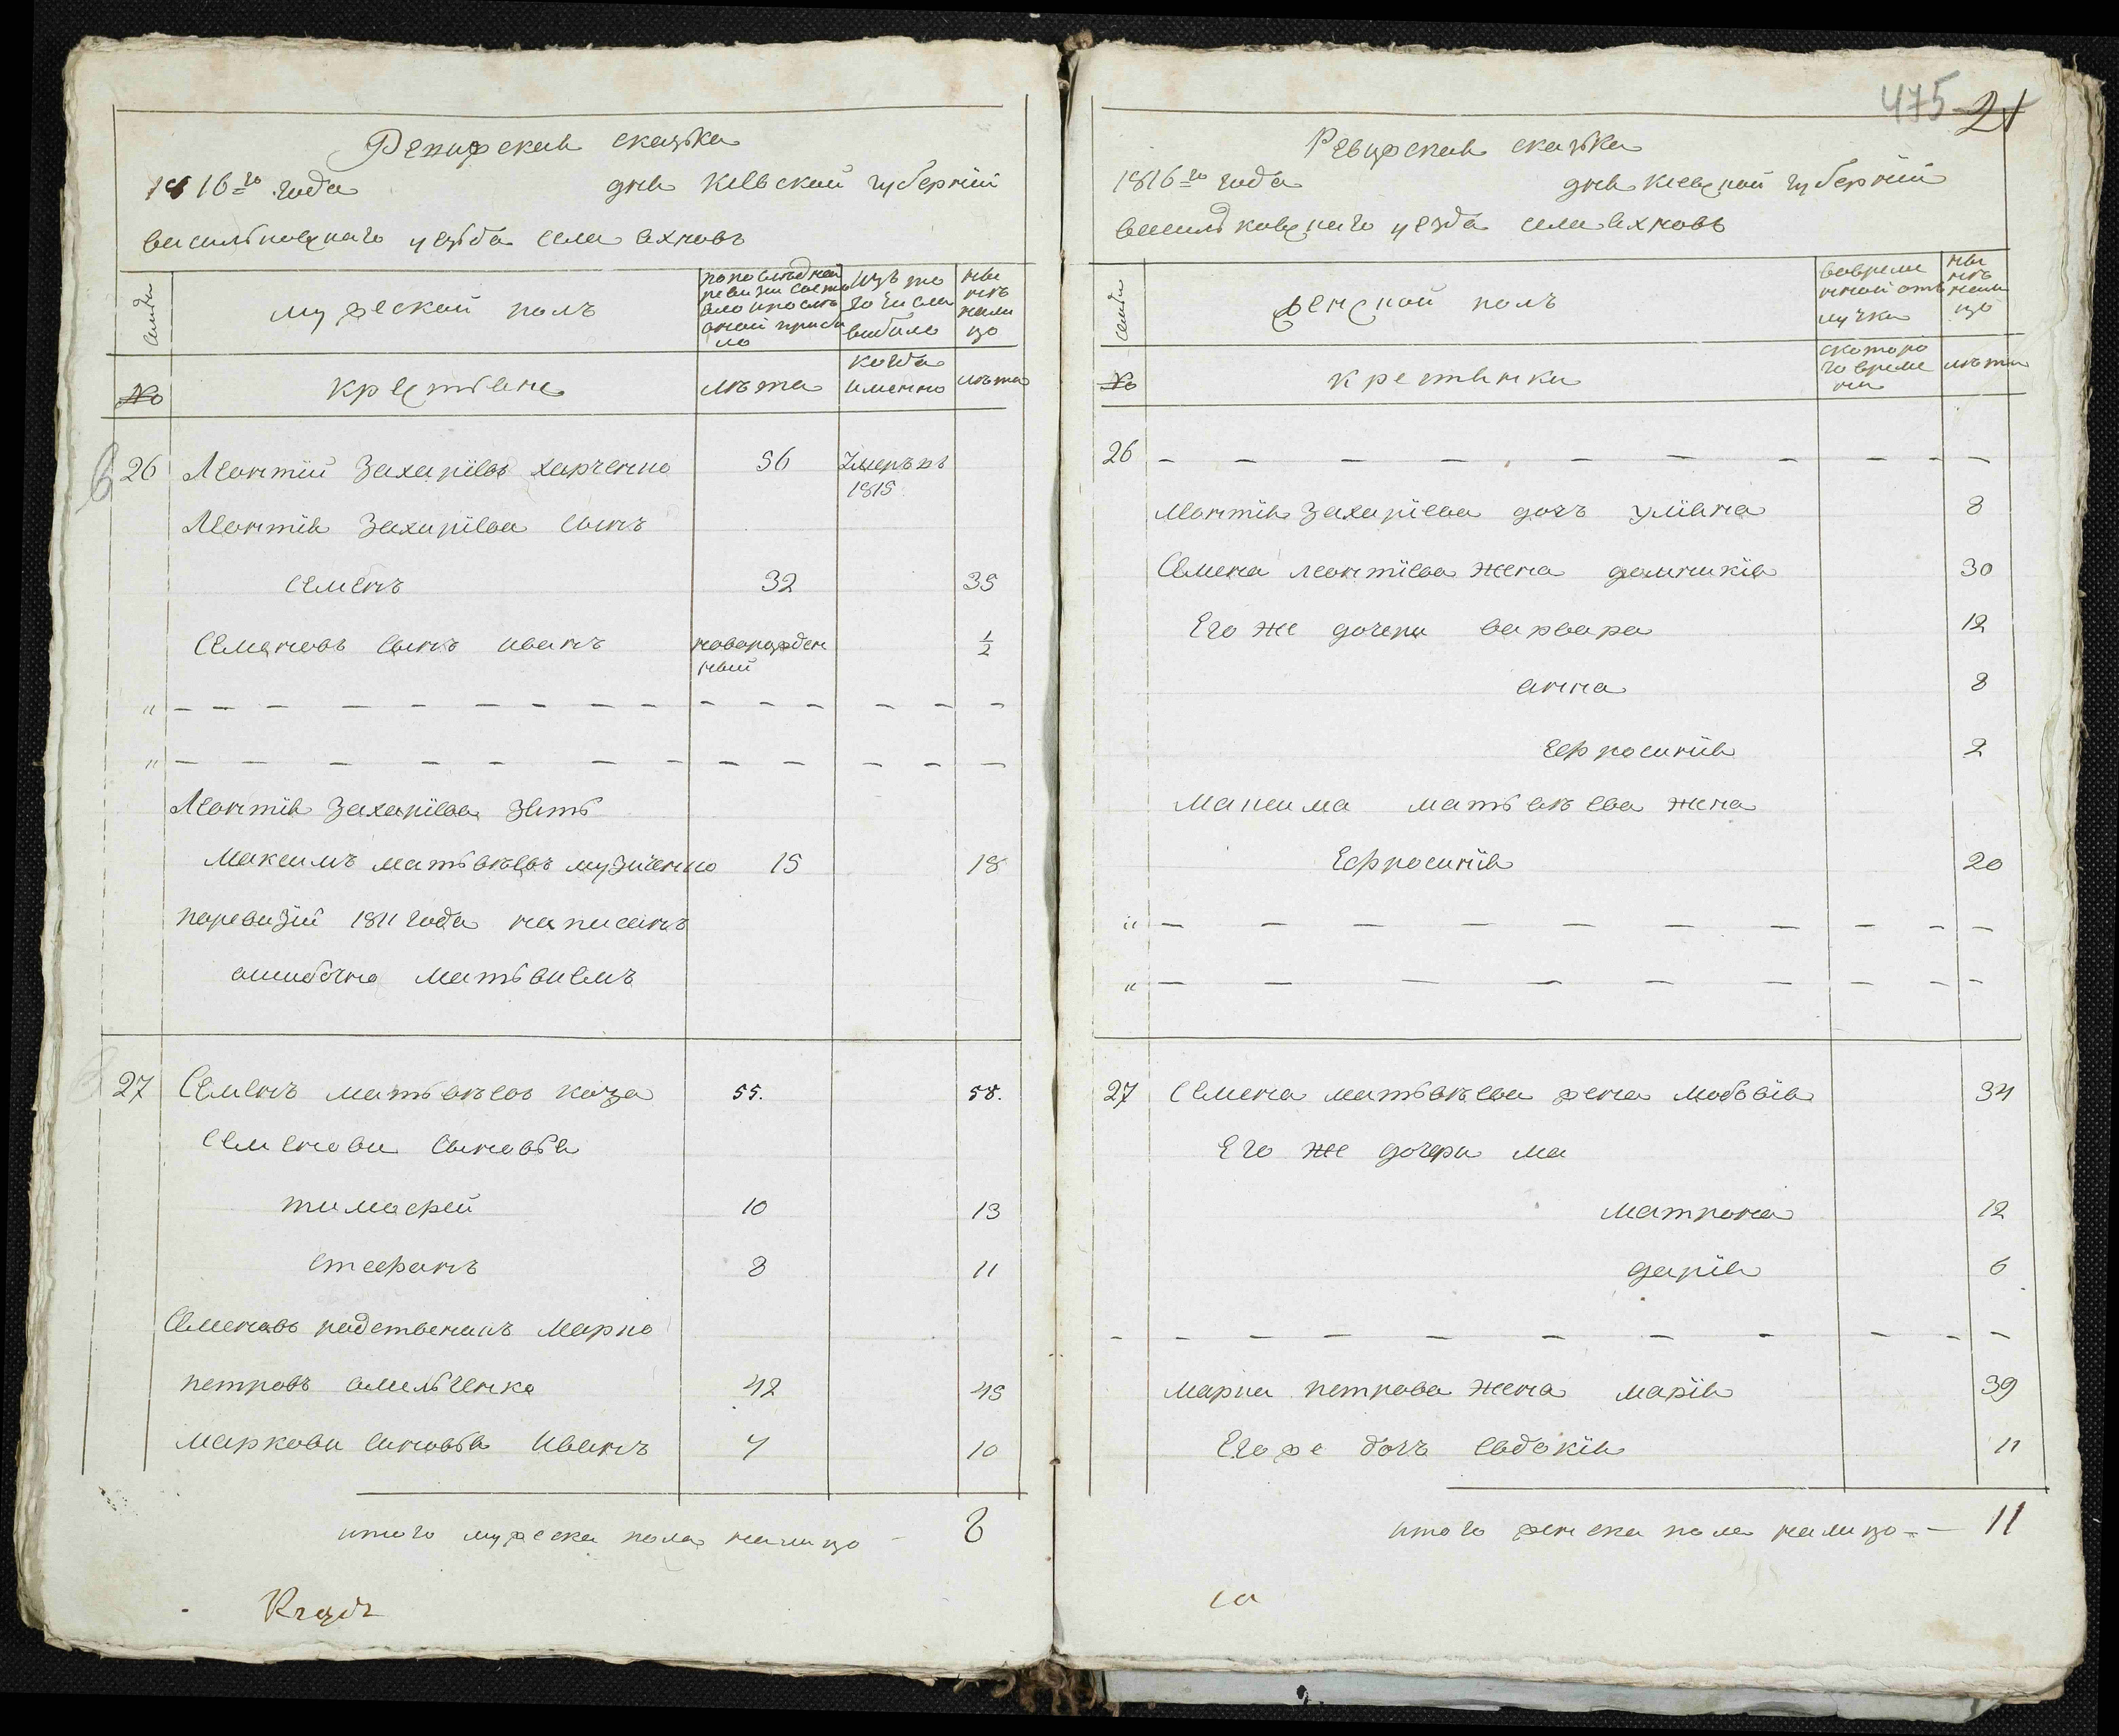 Ревижская скаска
1816=го года дня Кіевской губерніи
васильковскаго уезда села яхновъ
семьи
мужеской полъ
по последней ревизіи состояло и после оной прибыло
изъ того числа выбыло
ныне налицо
№
крестьяне
лѣта
когда именно
лѣта
26 Леонтій Захаріевъ харченко 56 Умеръ въ 1815
Леонтія Захаріева сынъ
семенъ 32 35
Семеновъ сынъ иванъ новорожденный 1/2
" — — — — — — — — —
" — — — — — — — — —
Леонтія Захаріева зять
максимъ матвѣевъ музиченко 15 18
поревизіи 1811 года написанъ
ошибочно матвиемъ
27 Семенъ матвѣевъ коза 55. 58.
Семенови сыновья
тимофей 10 13
стефанъ 8 11
Семеновъ родственикъ Марко
петровъ омельченко 42 45
маркови синовья иванъ 7 10
итого мужеска пола налицо — 8
475 21
Ревижская скаска
1816=го года дня кіевской губерніи
васильковскаго уезда села яхновъ
семьи
женской полъ
вовременной отлучки
ныне налицо
№
крестянки
скоторого времени
лѣта
26 — — — — — — — — —
Леонтія Захаріева дочъ уліяна 8
Семена леонтіева жена домникія 30
Его же дочери варвара 12
анна 8
Ефросинія 2
Максима матвѣева жена
Ефросинія 20
" — — — — — — — — —
" — — — — — — — — —
27 Семена матвѣева жена любовія 34
Его же дочери ма
матрона 12
дарія 6
— — — — — — — — —
марка петрова жена марія 39
Его же дочъ евдокія 11
итого женска пола налицо = — 11